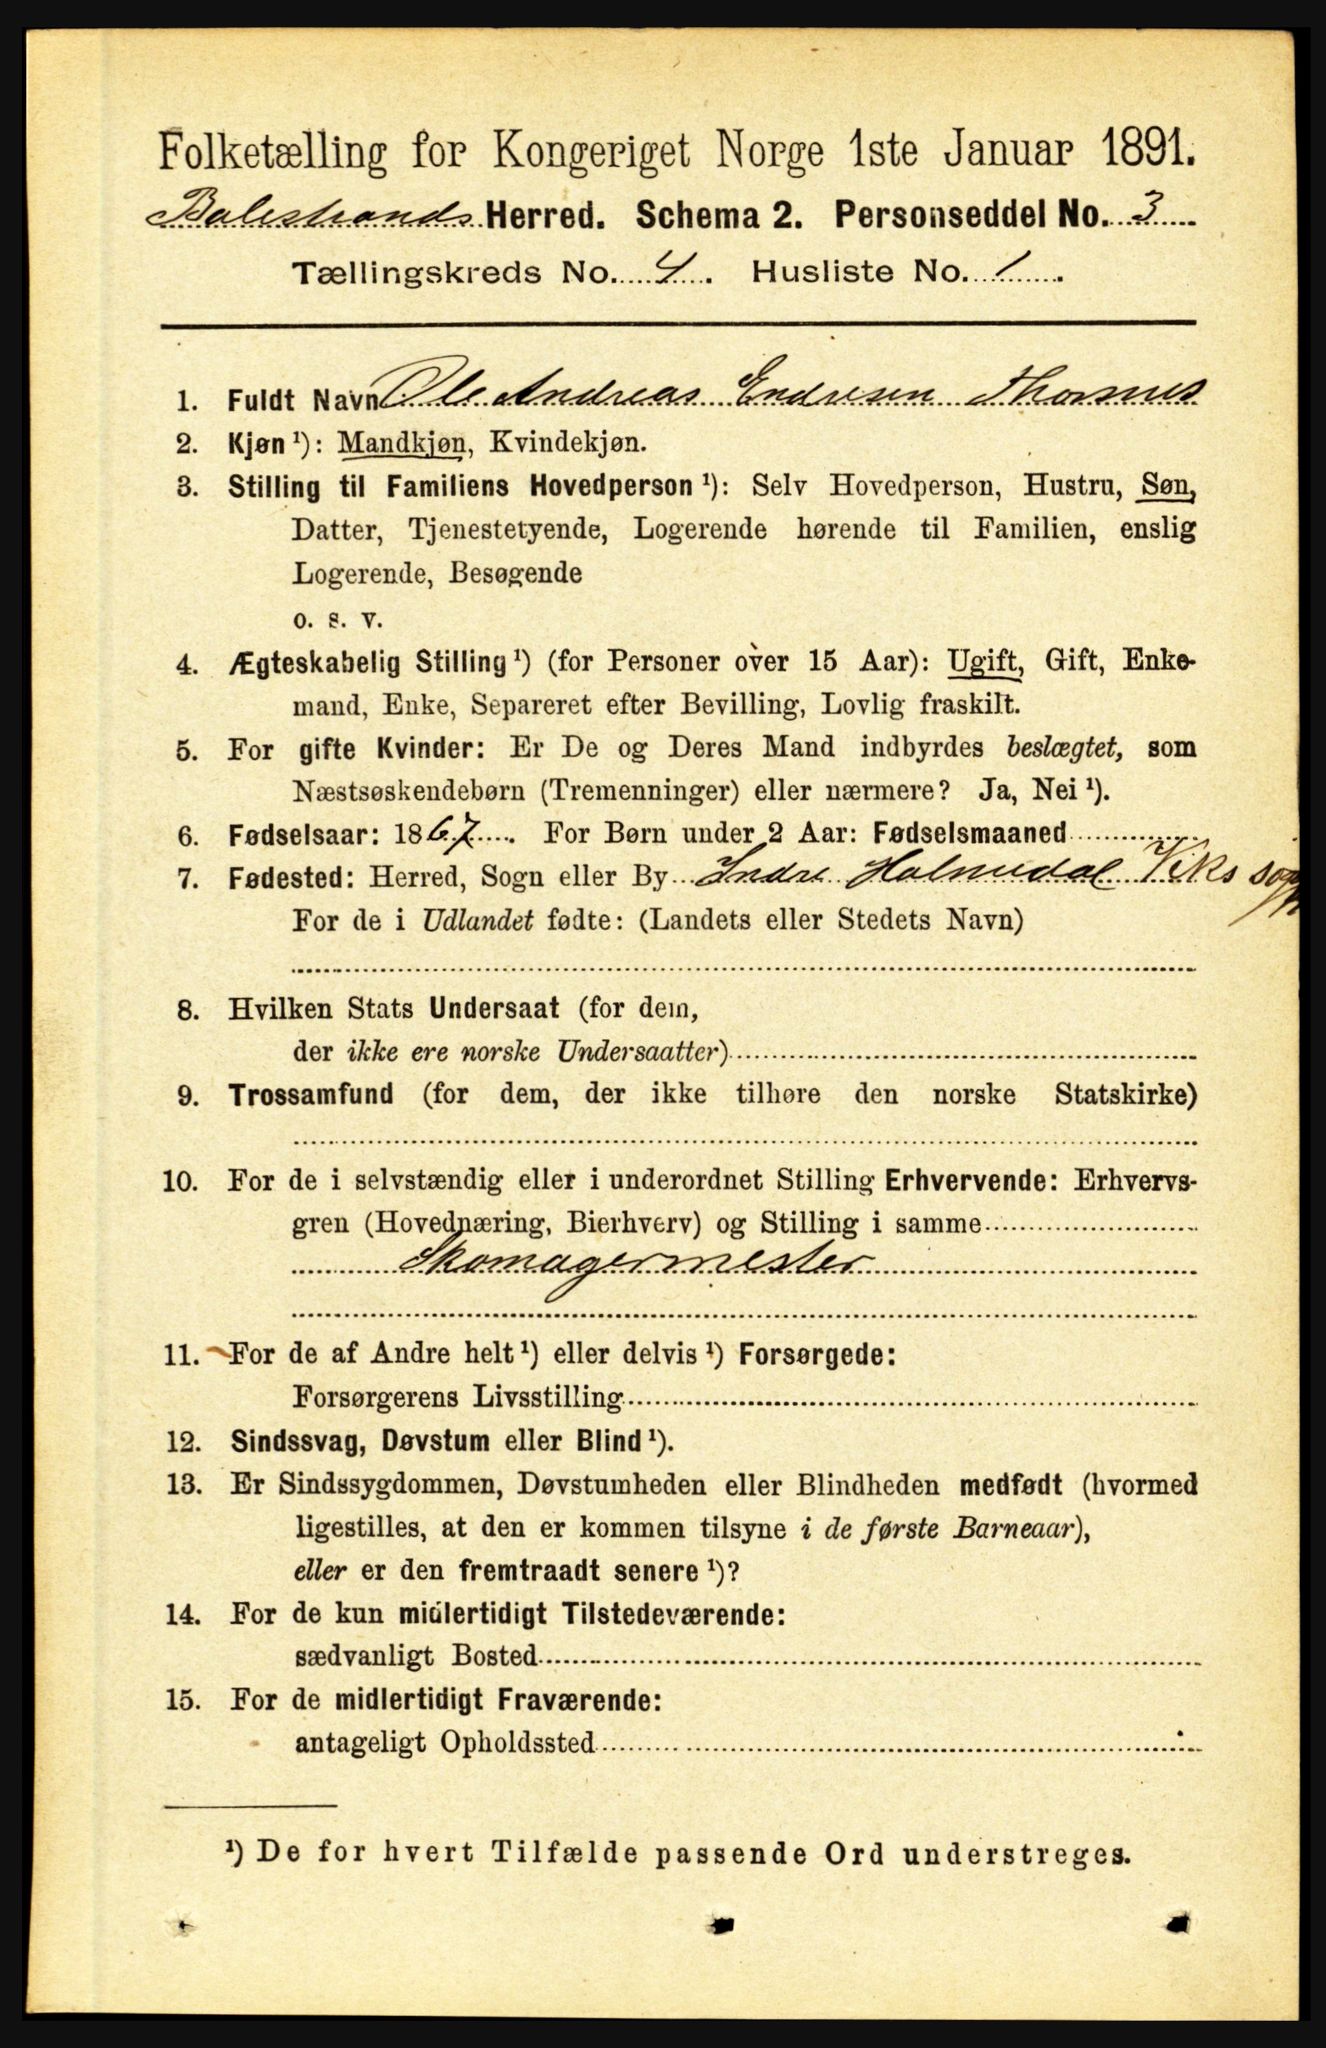 Folketælling for Kongeriget Norge 1ste Januar 1891.
Balestrands Herred. Schema 2. Personseddel No. 3
Tællingskreds No. 4. Husliste No. 1.
1. Fuldt Navn Ole Andreas Endresen Thorsnes
2. Kjøn ¹): Mandkjøn, Kvindekjøn.
3. Stilling til Familiens Hovedperson ¹): Selv Hovedperson, Hustru, Søn,
Datter, Tjenestetyende, Logerende hørende til Familien, enslig
Logerende, Besøgende
o. s. v.
4. Ægteskabelig Stilling ¹) (for Personer over 15 Aar): Ugift, Gift, Enke-
mand, Enke, Separeret efter Bevilling, Lovlig fraskilt.
5. For gifte Kvinder: Er De og Deres Mand indbyrdes beslægtet, som
Næstsøskendebørn (Tremenninger) eller nærmere? Ja, Nei ¹).
6. Fødselsaar: 1867. For Børn under 2 Aar: Fødselsmaaned
7. Fødested: Herred, Sogn eller By Indre Holmedal Viks sogn
For de i Udlandet fødte: (Landets eller Stedets Navn)
8. Hvilken Stats Undersaat (for dem,
der ikke ere norske Undersaatter)
9. Trossamfund (for dem, der ikke tilhøre den norske Statskirke)
10. For de i selvstændig eller i underordnet Stilling Erhvervende: Erhvervs-
gren (Hovednæring, Bierhverv) og Stilling i samme
Skomagermester
11. For de af Andre helt ¹) eller delvis ¹) Forsørgede:
Forsørgerens Livsstilling
12. Sindssvag, Døvstum eller Blind ¹).
13. Er Sindssygdommen, Døvstumheden eller Blindheden medfødt (hvormed
ligestilles, at den er kommen tilsyne i de første Barneaar),
eller er den fremtraadt senere ¹)?
14. For de kun midlertidigt Tilstedeværende:
sædvanligt Bosted
15. For de midlertidigt Fraværende:
antageligt Opholdssted
¹) De for hvert Tilfælde passende Ord understreges.